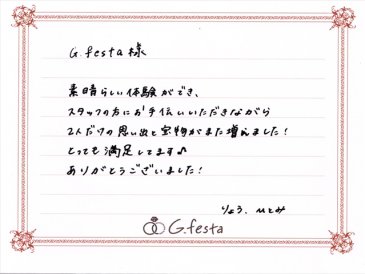 G.festa 様
素晴らしい体験ができ、
スタッフの方にお手伝いいただきながら
2人だけの思い出と宝物がまた増えました！
とっても満足してます♪
ありがとうございました！
りょう、ひとみ
G.festa